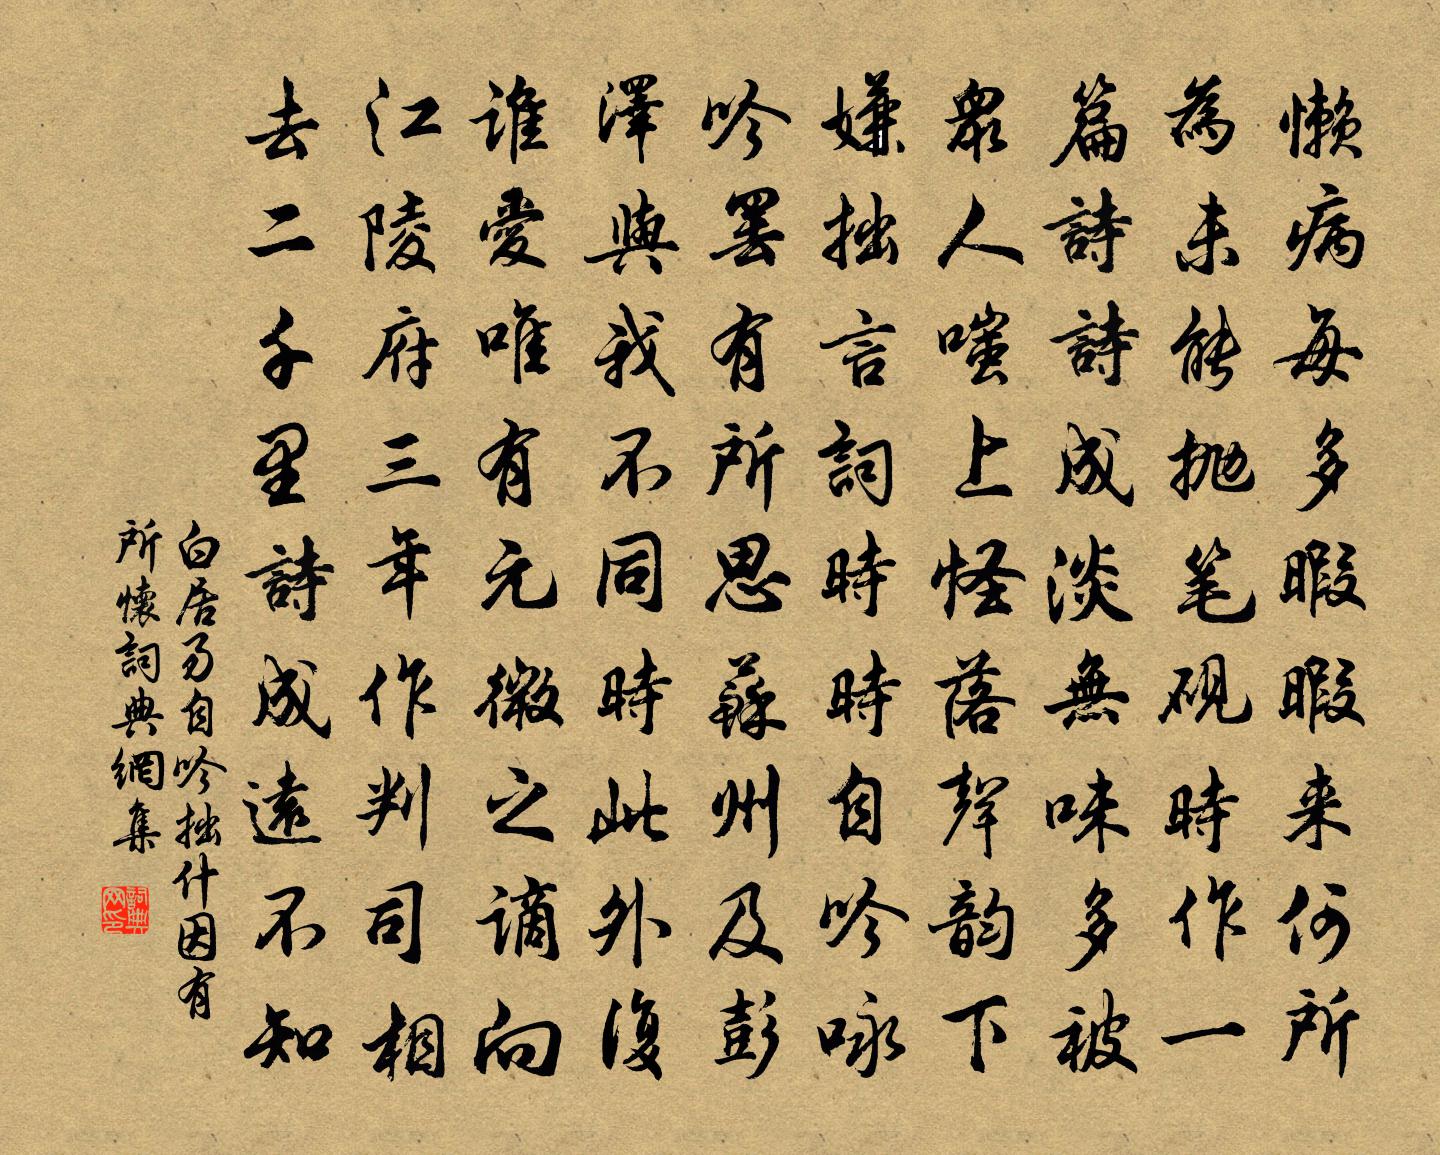 懶病每多暇暇来何所
為未能抛笔硯時作一
篇詩詩成淡無味多被
衆人嗤上怪落聲韵下
嫌拙言詞時時自吟咏
吟罢有所思蘇州及彭
澤與我不同時此外復
誰愛唯有元微之谪向
江陵府三年作判司相
去二千里詩成遠不知
白居易自吟拙什因有
所懷詞典網集
詞典
网印